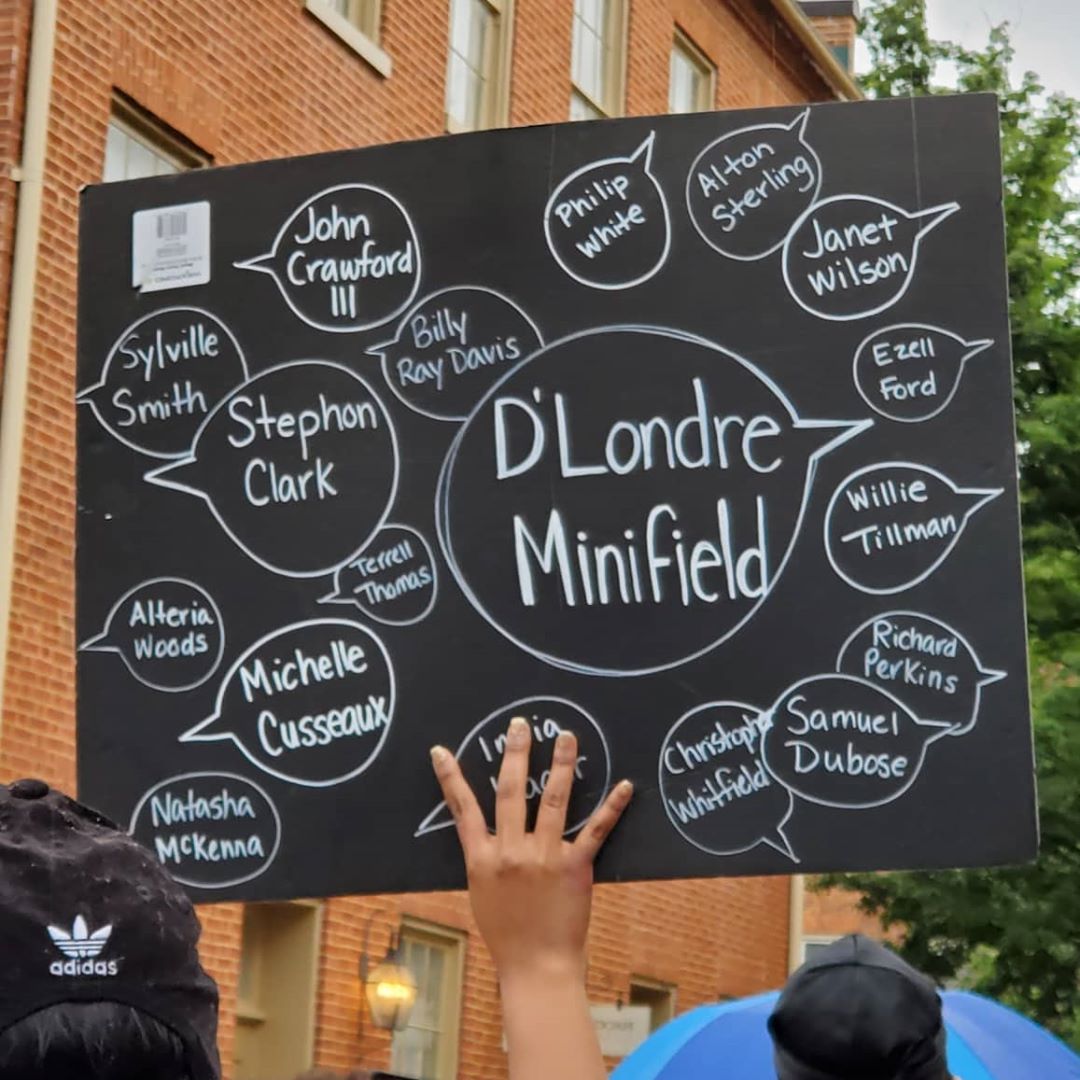 John
Crawford
III
Philip
White
Alton
Sterling
Janet
Wilson
Sylville
Smith
Billy
Ray Davis
Ezell
Ford
Stephon
Clark
D'Londre
Minifield
Willie
Tillman
Terrell
Thomas
Alteria
Woods
Richard
Perkins
Michelle
Cusseaux
Samuel
Dubose
Christopher
Whitfield
Natasha
McKenna
adidas